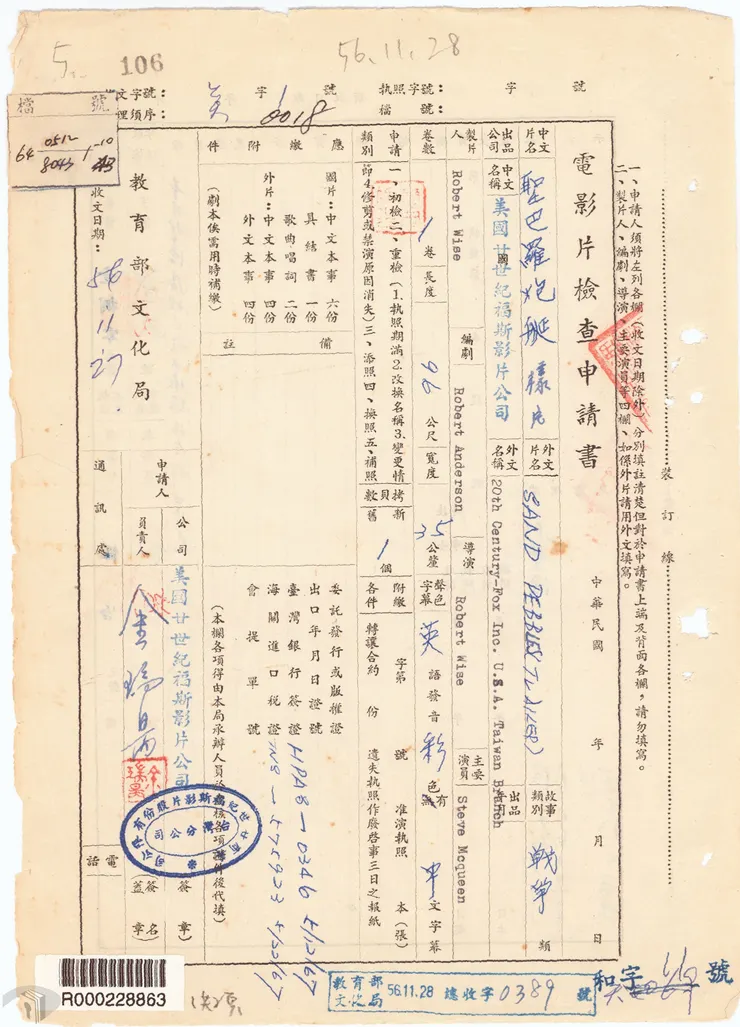 5.
106
56.11.28
文字號: 美字1號
執照字號: 字 號
檔號:
0018
檔 號
64
0512
8043
收文日期: 56 11 27
教育部文化局
裝訂線
一、申請人須將左列各欄(收文日期除外)分別填註清楚但對於申請書上端及背面各欄,請勿填寫。
二、製片人、編劇、導演、主要演員等四欄、如係外片請用外文填寫。
電影片檢查申請書
中華民國 年 月 日
中文片名 聖巴羅炮艇 樣片
外文片名 SAND PEBBLES TRAILER)
故事類別 戰爭 類
出品公司 中文名稱 美國廿世紀福斯影片公司
外文名稱 20th Century-Fox Inc. U.S.A. Taiwan Branch
製片人 Robert Wise
編劇 Robert Anderson
導演 Robert Wise
主要演員 Steve Mcqueen
卷數 1 卷
長度 96 公尺
寬度 35 公厘
聲色字幕 英 語發音 彩 色 有無 中 文字幕
申請類別 一、初檢 二、重檢(1.執照期滿 2.改換名稱 3.變更情節 4.修剪或禁演原因消失) 三、添照 四、換照 五、補照
拷貝數 新 舊 1 個
附繳各件 字第 號 准演執照 本(張)
轉讓合約 份 遺失執照作廢啓事三日之報紙
應繳附件
國片:中文本事 六份
具結書 一份
歌曲唱詞 二份
外片:中文本事 四份
外文本事 四份
(劇本俟需用時補繳)
備註
委託發行或版權證
出口年月日證號
臺灣銀行簽證 HPA8-0346
海關進口稅證
會提單號
(本欄各項得由本局承辦人員於審核各項證件後代填)
申請人
公司 美國廿世紀福斯影片公司 (簽章)
負責人 金瑞昺 (簽名蓋章)
通訊處
電話
台灣分公司
R000228863
教育部文化局 56.11.28 總收字 0389 號
和字 號